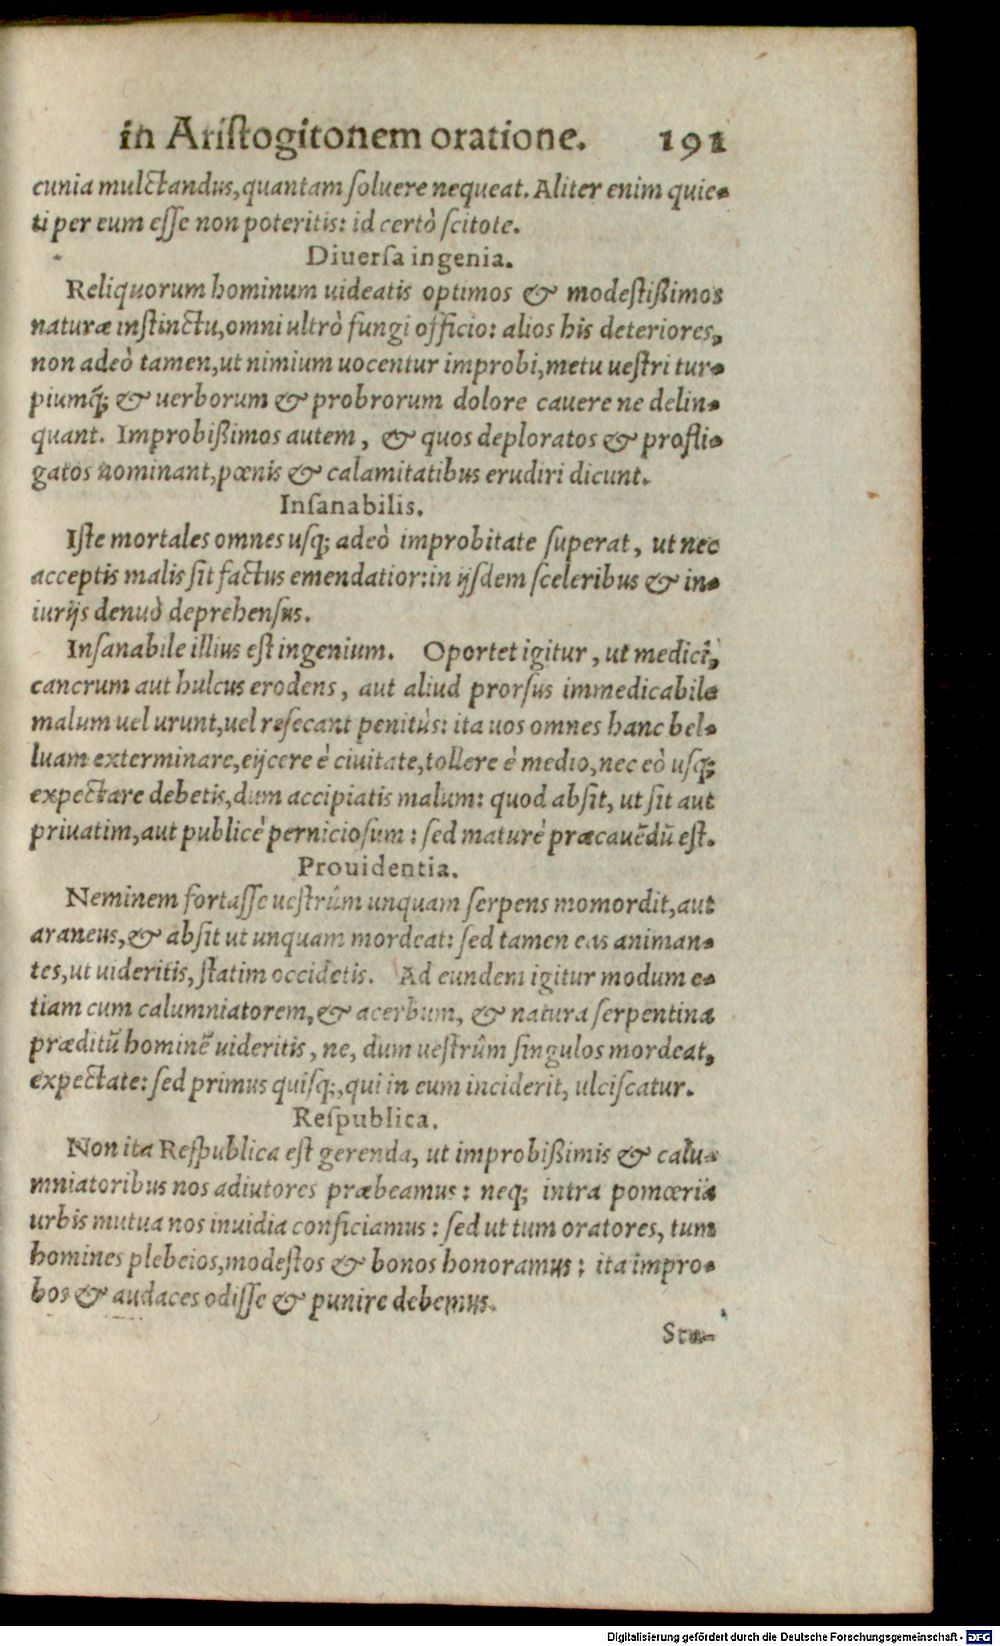 in Aristogitonem oratione. 191
cunia mulctandus, quantam soluere nequeat. Aliter enim quie-
ti per eum esse non poteritis: id certò scitote.
Diuersa ingenia.
Reliquorum hominum uideatis optimos & modestißimos
naturæ instinctu, omni ultrò fungi officio: alios his deteriores,
non adeò tamen, ut nimium uocentur improbi, metu uestri tur-
piumq́; & uerborum & probrorum dolore cauere ne delin-
quant. Improbißimos autem, & quos deploratos & profli-
gatos nominant, pœnis & calamitatibus erudiri dicunt.
Insanabilis.
Iste mortales omnes usq; adeò improbitate superat, ut nec
acceptis malis sit factus emendatior: in ijsdem sceleribus & in-
iurijs denuò deprehensus.
Insanabile illius est ingenium. Oportet igitur, ut medici,
cancrum aut hulcus erodens, aut aliud prorsus immedicabile
malum uel urunt, uel resecant penitùs: ita uos omnes hanc bel-
luam exterminare, eijcere è ciuitate, tollere è medio, nec eò usq;
expectare debetis, dum accipiatis malum: quod absit, ut sit aut
priuatim, aut publicè perniciosum: sed maturè præcauēdū est.
Prouidentia.
Neminem fortasse uestrûm unquam serpens momordit, aut
araneus, & absit ut unquam mordeat: sed tamen eas animan-
tes, ut uideritis, statim occidetis. Ad eundem igitur modum e-
tiam cum calumniatorem, & acerbum, & natura serpentina
præditū hominē uideritis, ne, dum uestrûm singulos mordeat,
expectate: sed primus quisq;, qui in eum inciderit, ulciscatur.
Respublica.
Non ita Respublica est gerenda, ut improbißimis & calu-
mniatoribus nos adiutores præbeamus: neq; intra pomœria
urbis mutua nos inuidia conficiamus: sed ut tum oratores, tum
homines plebeios, modestos & bonos honoramus: ita impro-
bos & audaces odisse & punire debemus.
Sta-
Digitalisierung gefördert durch die Deutsche Forschungsgemeinschaft - DFG